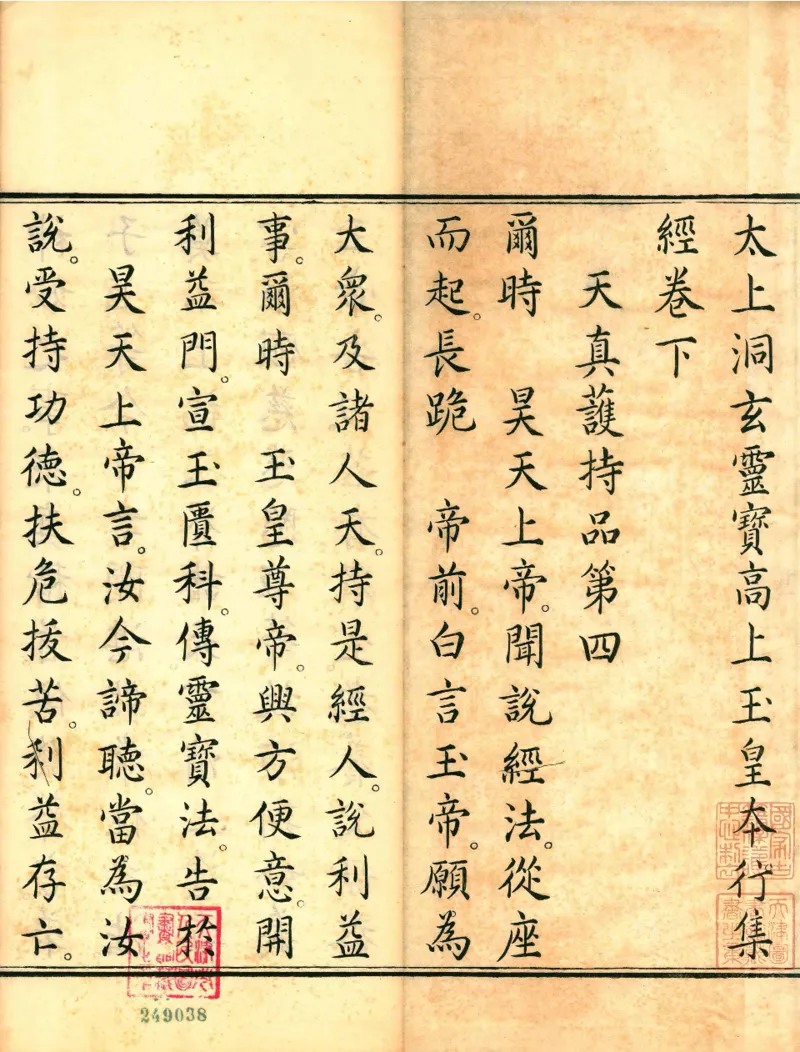 太上洞玄靈寶高上玉皇本行集
經卷下
天真護持品第四
爾時 昊天上帝。聞說經法。從座
而起。長跪 帝前。白言玉帝。願為
大衆。及諸人天。持是經人。說利益
事。爾時 玉皇尊帝。興方便意。開
利益門。宣玉匱科。傳靈寶法。告於
昊天上帝言。汝今諦聽。當為汝
說。受持功德。扶危拔苦。利益存亡。
249038